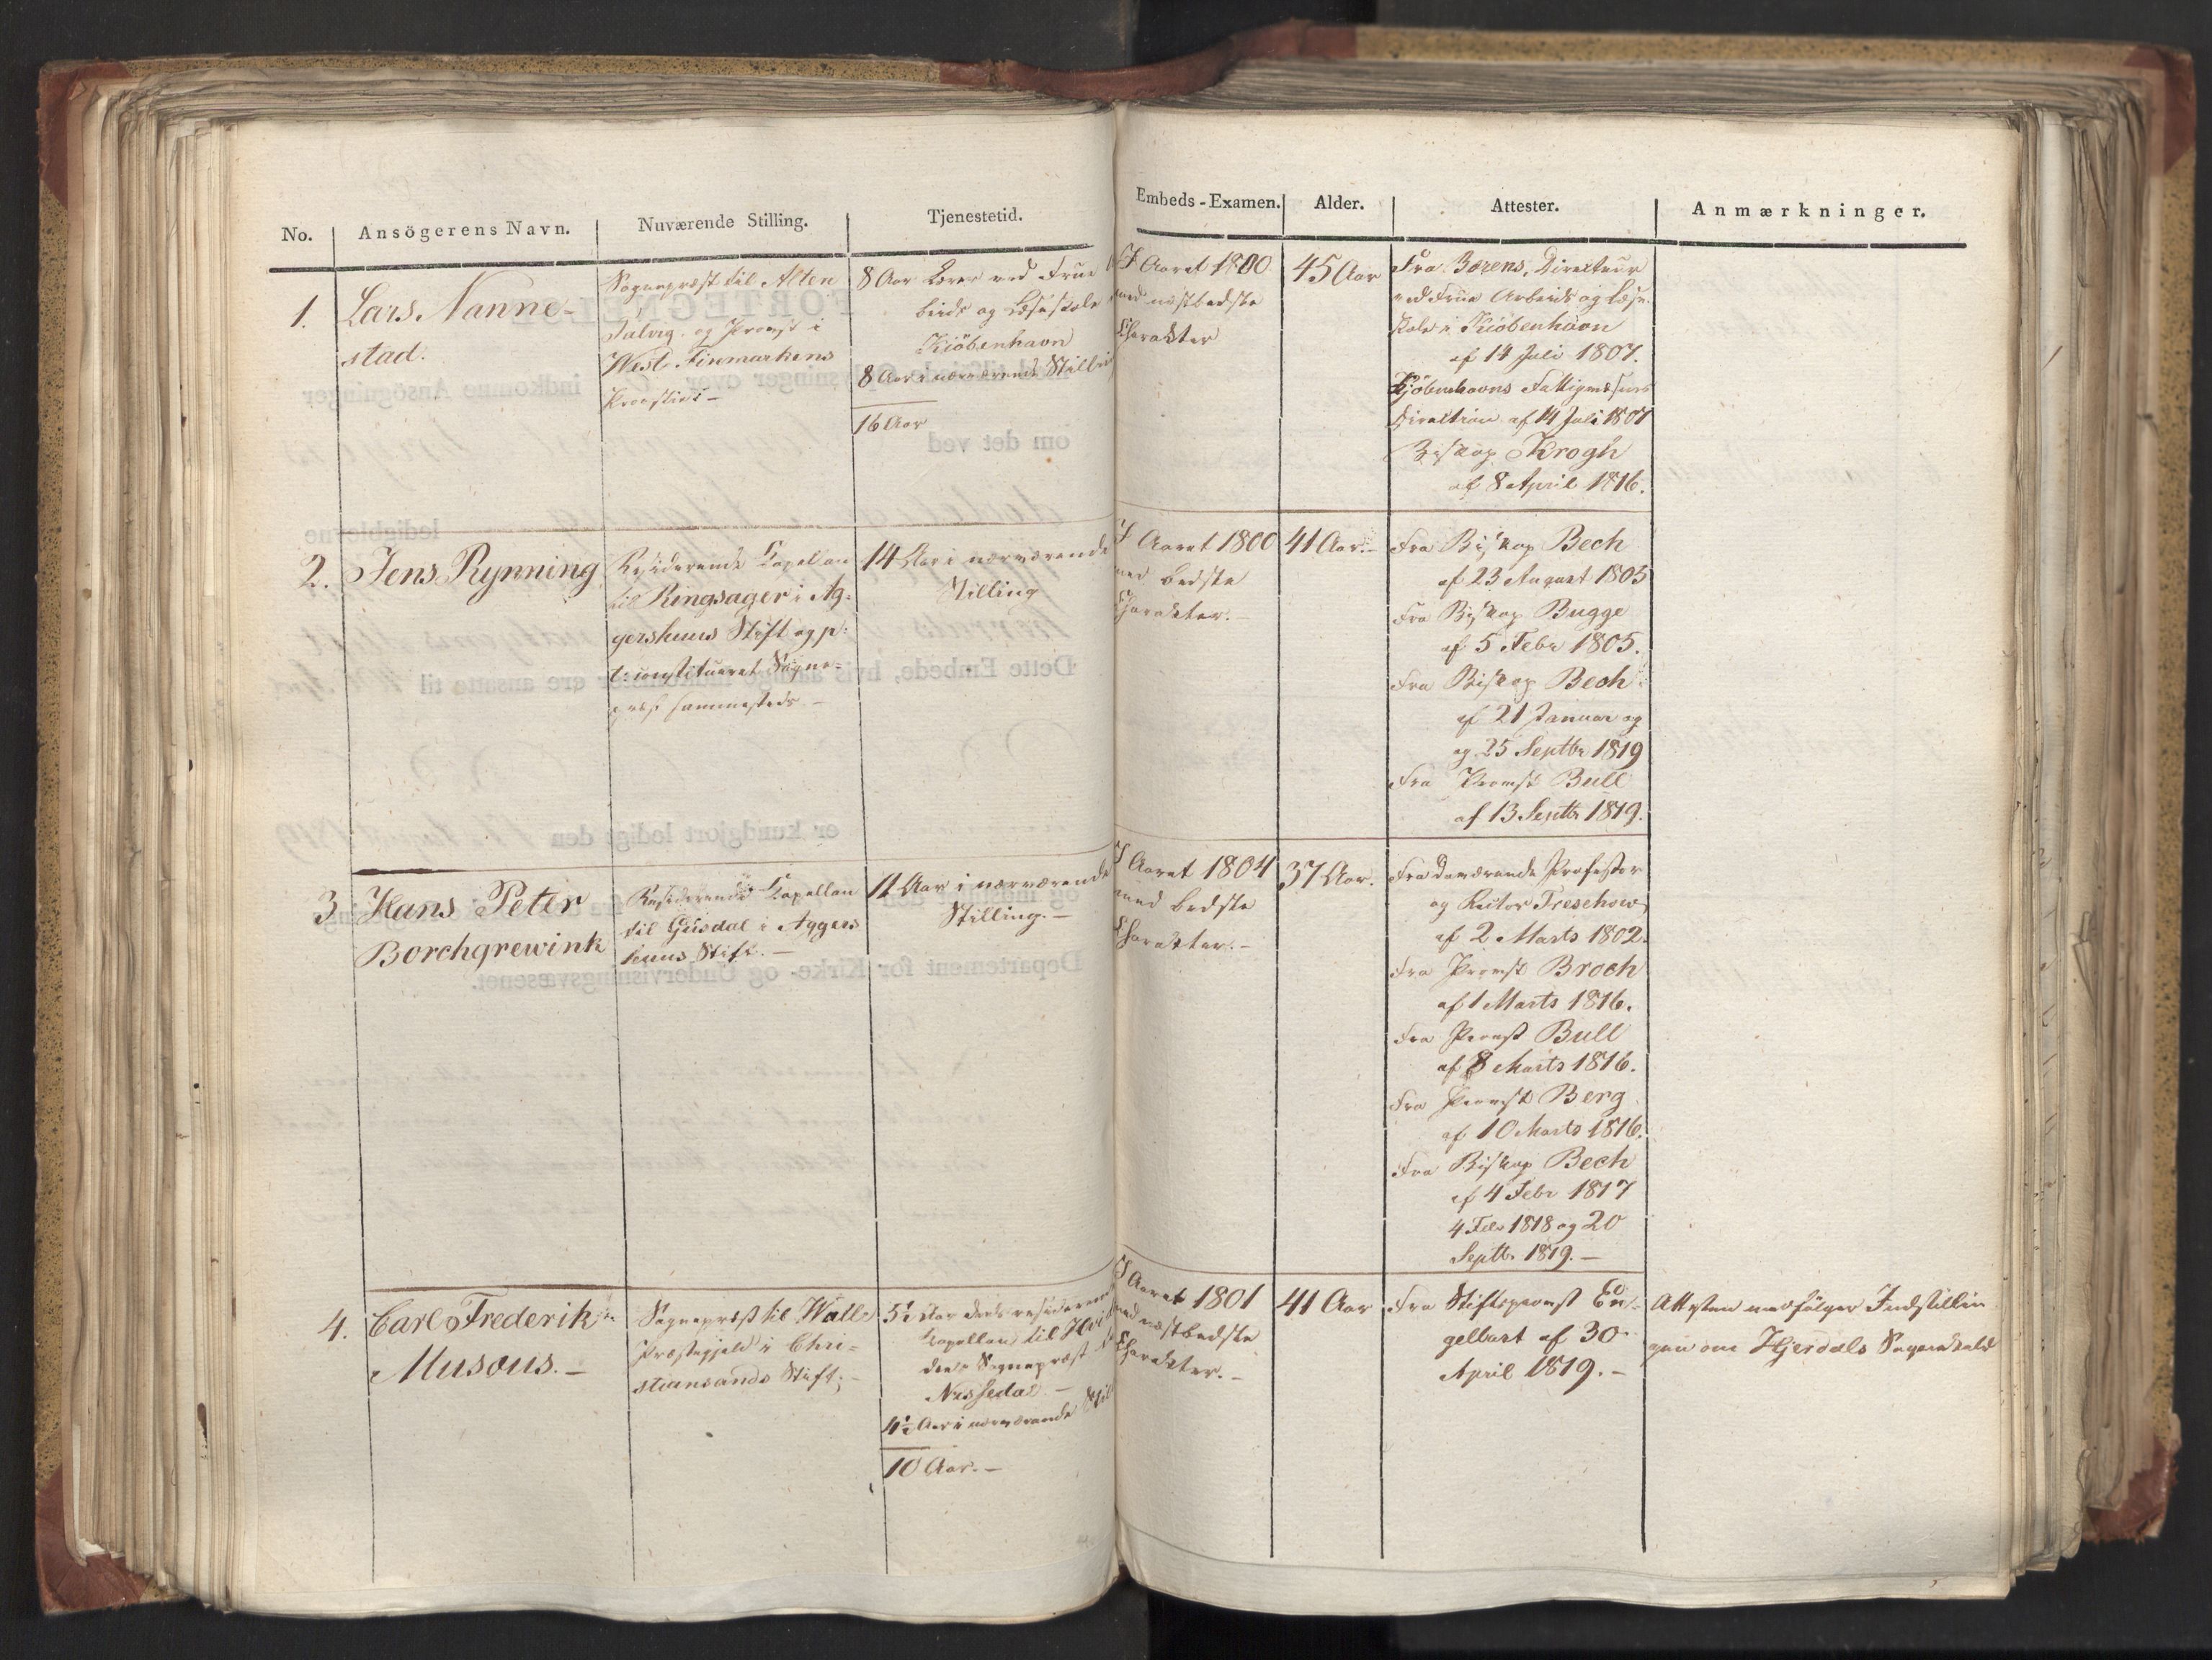 No. Ansögerens Navn. Nuværende Stilling. Tjenestetid. Embeds-Examen. Alder. Attester. Anmærkninger.
1.
Lars Nanne-
stad.
Sognepræst til Alten
Talvig og Provst i
West-Finmarkens
Provstie –
8 Aar Lærer ved Frue
beids og Læseskole
Kiöbenhavn
8 Aar i nærværende Stilling
16 Aar
I Aaret 1800
med næstbedste
Charakter
45 Aar
Fra Borens, Directeur
ved Frue Arbeids og Læse-
skole i Kiöbenhavn
af 14 Juli 1807.
Kjöbenhavns Fattigvæsens
Direction af 14 Juli 1807
Biskop Krogh
af 8 April 1816.
2.
Jens Rynning
Residerende Capellan
til Ringsager i Ag-
gershuus Stift og p:
t: constitueret Sogne-
præst sammesteds –
14 Aar i nærværende
Stilling
I Aaret 1800
med bedste
Charakter. –
41 Aar. –
Fra Biskop Bech
af 23 August 1805
Fra Biskop Bugge
af 5 Febr 1805.
Fra Biskop Bech
af 21 Januar og
og 25 Septbr 1819
Fra Provst Bull
af 13 Septbr 1819.
3.
Hans Peter
Borchgrewink
Residerende Capellan
til Gusdal i Aggers
huus Stift. –
11 Aar i nærværende
Stilling. –
I Aaret 1804
med bedste
Charakter. –
37 Aar.
Fra daværende Professor
og Rector Treschow
af 2 Marts 1802.
Fra Provst Broch
af 1 Marts 1816.
Fra Provst Bull
af 8 Marts 1816.
Fra Provst Berg
af 10 Marts 1816.
Fra Biskop Bech
af 4 Febr 1817
4 Febr 1818 og 20
Septbr 1819. –
4.
Carl Frederik
Musæus. –
Sognepræst til Walle
Præstegjeld i Chri-
stiansands Stift; –
5½ Aar deels residerende
Capellan til
deels Sognepræst
Nissedal –
4½ Aar i nærværende Stil
10 Aar. –
I Aaret 1801
med næstbedste
Charakter. –
41 Aar
Fra Stiftsprovst En-
gelhart af 30
April 1819. –
Attesten medfölger Indstillin
gen om Hjerdals Sognekald